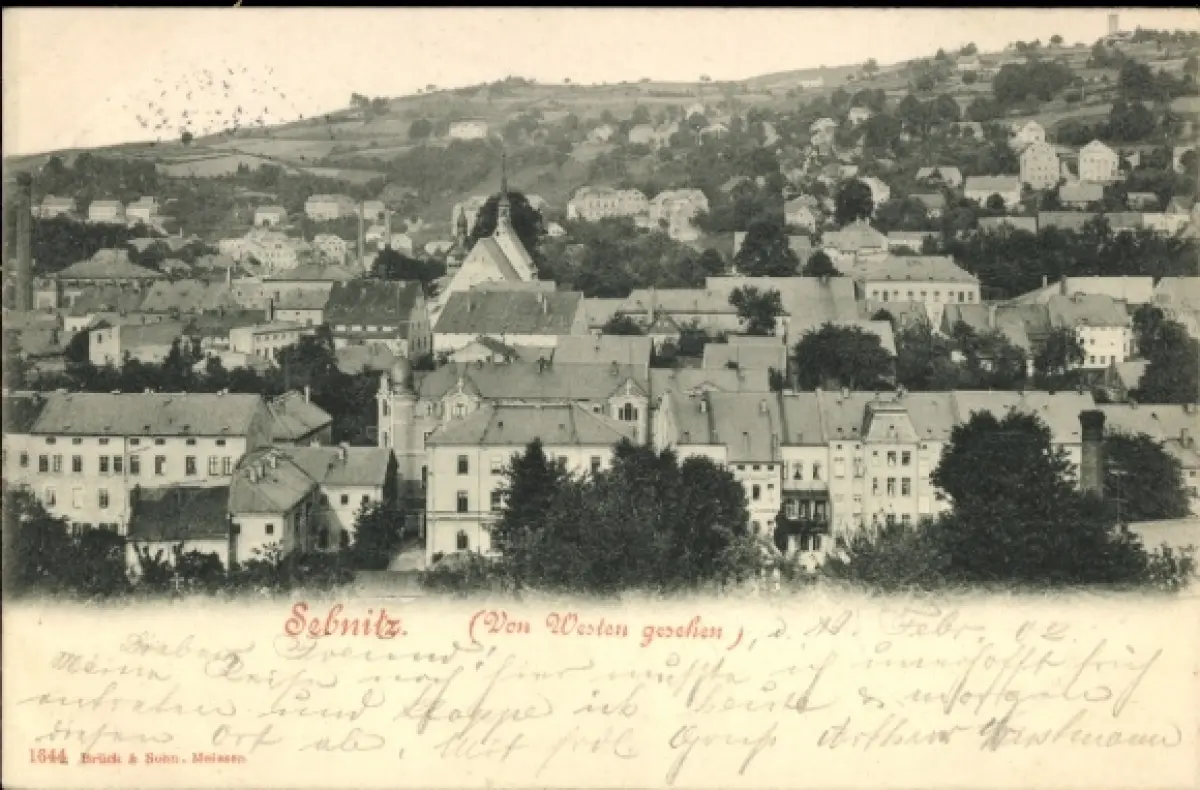 Sebnitz. (Von Westen gesehen), d. 11. Febr. 02.
Lieben Freund!
Meine Reise nach hier mußte ich unverhofft früh
antreten und klappe ich heute & morgen
diesen Ort ab. Mit frdl. Gruß Arthur
1644 Brück & Sohn, Meissen